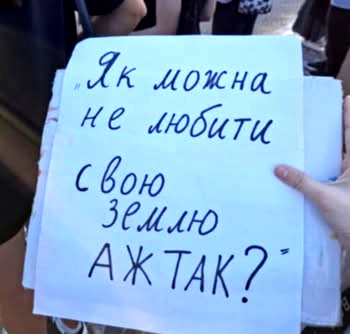 „Як можна
не любити
свою
землю
АЖ ТАК?"